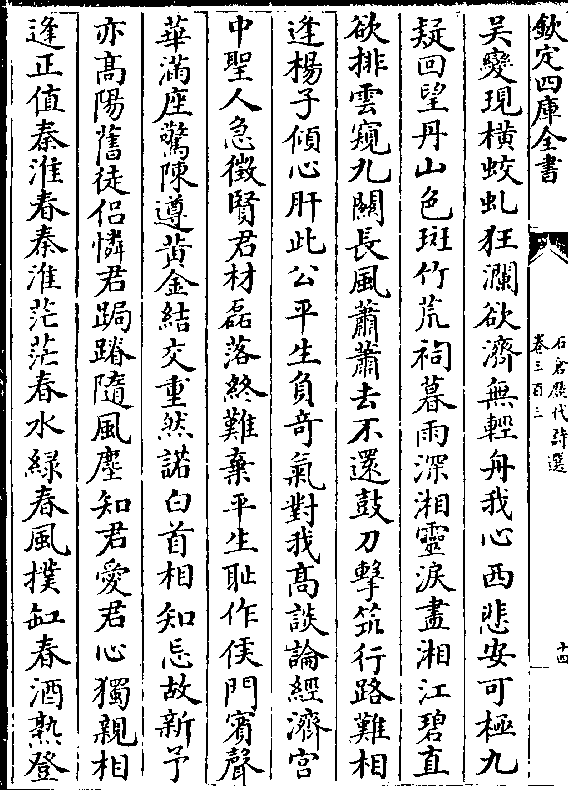 欽定四庫全書
石倉歷代詩選
卷三百三
十四
吴變現橫蛟虬狂瀾欲濟無輕舟我心西悲安可極九
疑回望丹山色斑竹荒祠暮雨深湘靈淚盡湘江碧直
欲排雲窺九關長風蕭蕭去不還鼓刀擊筑行路難相
逢楊子傾心肝此公平生負竒氣對我髙談論經濟宫
中聖人急徴賢君材磊落終難棄平生耻作侯門賓聲
華滿座驚陳遵黄金結交重然諾白首相知忘故新予
亦髙陽舊徒侣憐君跼蹐隨風塵知君愛君心獨親相
逢正值秦淮春秦淮茫茫春水緑春風撲缸春酒熟登